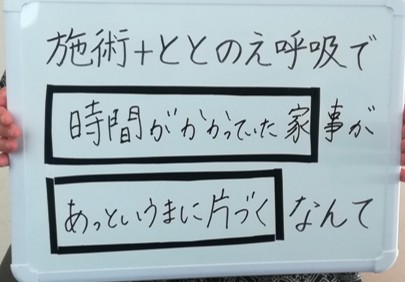 施術+ととのえ呼吸で
時間がかかっていた家事が
あっというまに片づくなんて